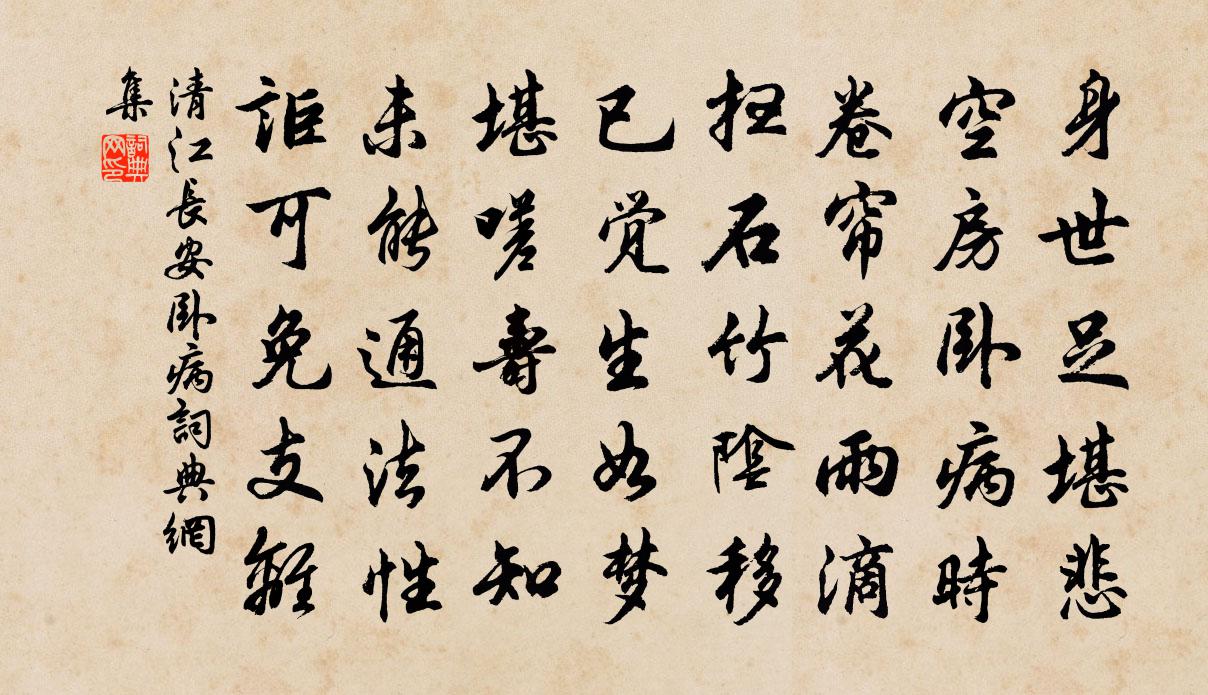 身世足堪悲
空房卧病時
卷帘花雨滴
扫石竹陰移
已觉生如梦
堪嗟壽不知
未能通法性
詎可免支離
清江長安卧病詞典網
集
詞典
网印